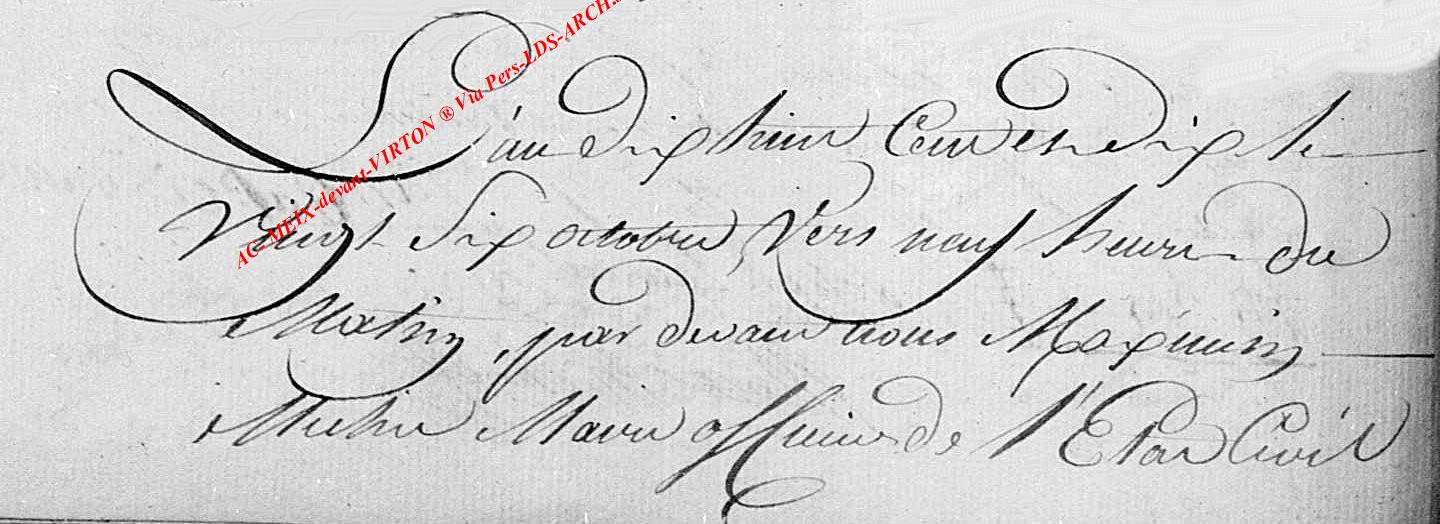 AC-MEIX-devant-VIRTON ® Via Pers-LDS-ARCH.
L'an dix huit Cent et dix le
Vingt Six octobre, Vers neuf heures du
Matin, par devant nous Maximin
Maire officier de l'Etat Civil